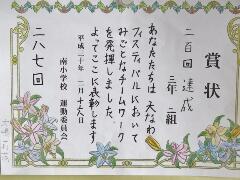 賞状
二百回達成
三年二組
あなたたちは大なわ
フェスティバルにおいて
みごとなチームワーク
を発揮しました。
よってここに表彰します
平成二十年二月十六日
南小学校 運動委員会
二八七回